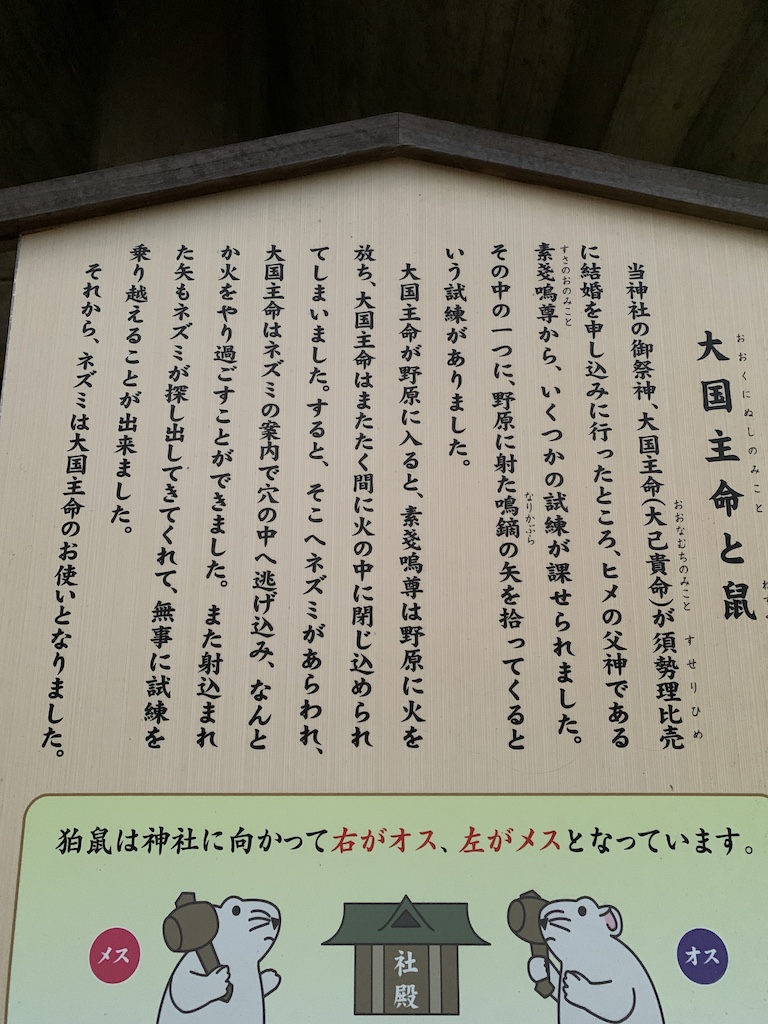 大国主命と鼠
おおくにぬしのみこと
当神社の御祭神、大国主命(大己貴命)が須勢理比売
おおなむちのみこと
すせりひめ
に結婚を申し込みに行ったところ、ヒメの父神である
素戔嗚尊から、いくつかの試練が課せられました。
すさのおのみこと
その中の一つに、野原に射た鳴鏑の矢を拾ってくると
なりかぶら
いう試練がありました。
大国主命が野原に入ると、素戔嗚尊は野原に火を
放ち、大国主命はまたたく間に火の中に閉じ込められ
てしまいました。すると、そこへネズミがあらわれ、
大国主命はネズミの案内で穴の中へ逃げ込み、なんと
か火をやり過ごすことができました。また射込まれ
た矢もネズミが探し出してきてくれて、無事に試練を
乗り越えることが出来ました。
それから、ネズミは大国主命のお使いとなりました。
狛鼠は神社に向かって右がオス、左がメスとなっています。
メス
社殿
オス